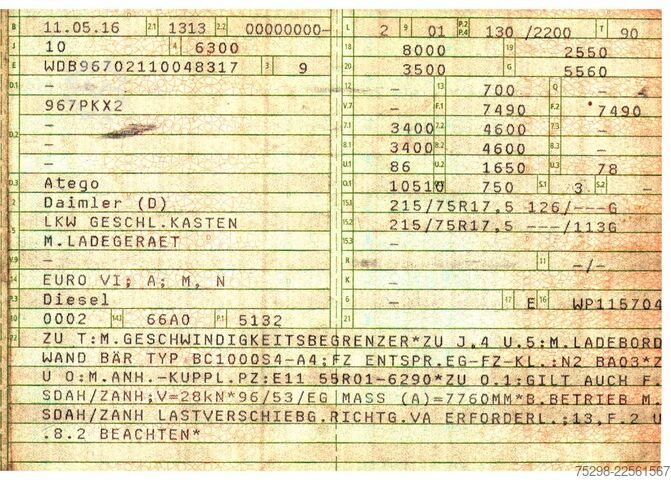 B 11.05.16 2.1 1313 2.2 00000000- L 2 9 01 P.2 P.4 130 /2200 T 90
J 10 4 6300 18 8000 19 2550
E WDB96702110048317 3 9 20 3500 G 5560
D.1 – 12 – 13 700 Q –
967PKX2 V.7 – F.1 7490 F.2 7490
– 7.1 3400 7.2 4600 7.3 –
D.2 – 8.1 3400 8.2 4600 8.3 –
– U.1 86 U.2 1650 U.3 78
D.3 Atego O.1 10510 750 S.1 3 S.2 –
2 Daimler (D) 15.1 215/75R17,5 126/---G
5 LKW GESCHL.KASTEN 15.2 215/75R17,5 ---/113G
M.LADEGERAET 15.3 –
V.9 – R – 11 –/–
14 EURO VI; A; M, N K –
P.3 Diesel 6 – 17 E 16 WP115704
10 0002 14.1 66A0 P.1 5132 21
22 ZU T:M.GESCHWINDIGKEITSBEGRENZER*ZU J,4 U.5:M.LADEBORD
WAND BÄR TYP BC1000S4-A4;FZ ENTSPR.EG-FZ-KL.:N2 BA03*Z
U O:M.ANH.-KUPPL.PZ:E11 55R01-6290*ZU O.1:GILT AUCH F.
SDAH/ZANH;V=28kN*96/53/EG MASS (A)=7760MM*B.BETRIEB M.
SDAH/ZANH LASTVERSCHIEBG.RICHTG.VA ERFORDERL.;13,F.2 U
.8.2 BEACHTEN*
75298-22561567